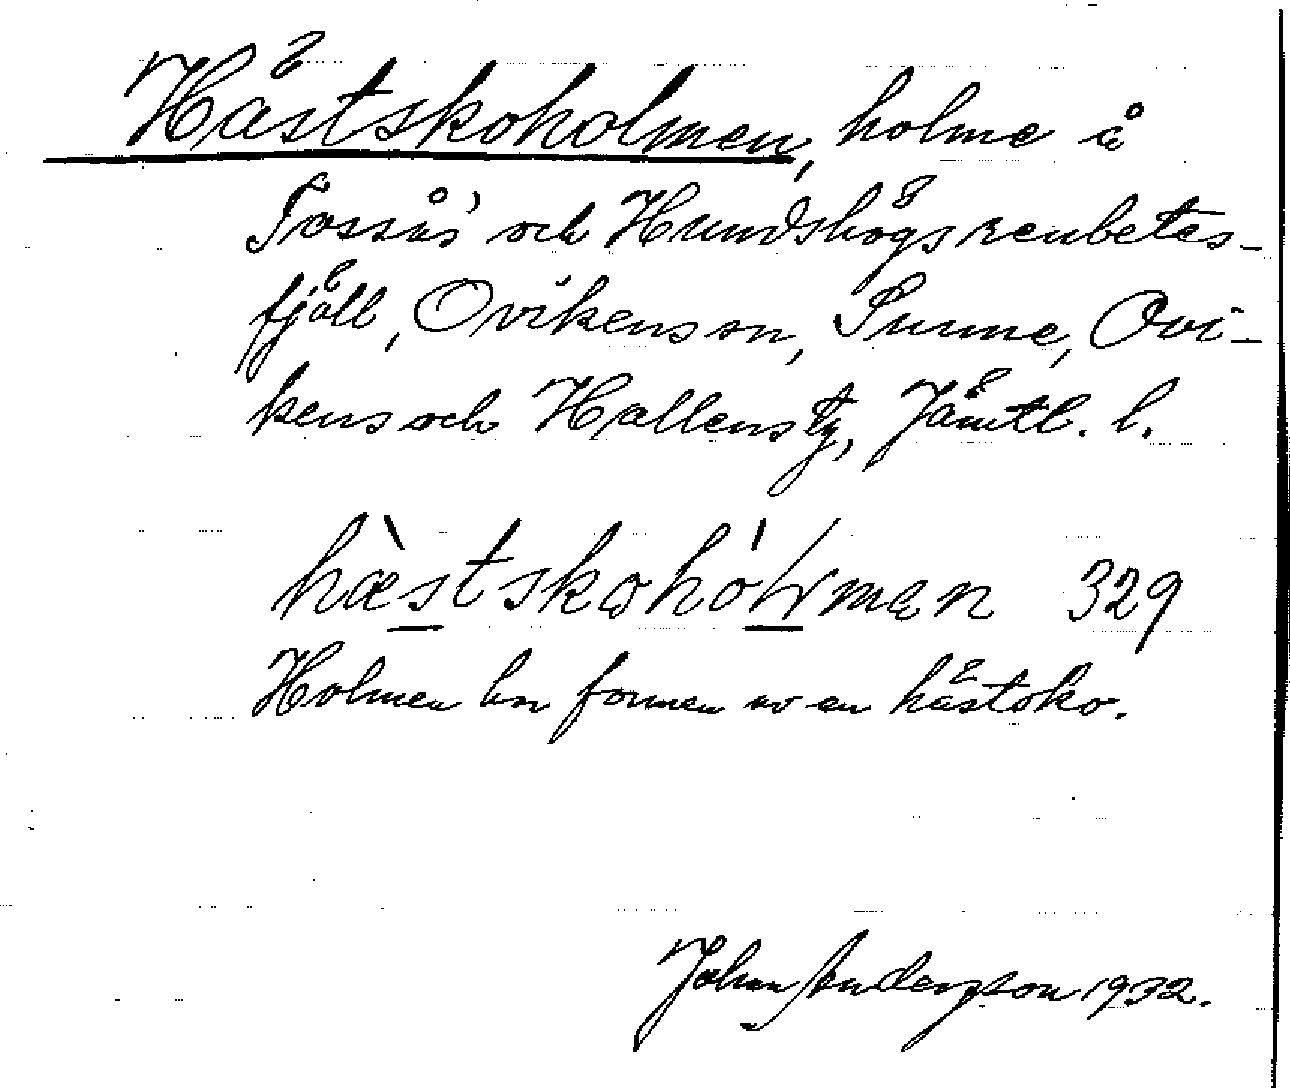 Hästskoholmen, holme å
Tossås' och Hundshögs renbetes-
fjäll, Ovikens sn, Sunne, Ovi-
kens och Hallens tg, Jämtl. l.
hæ̀stskohólmen 329
Holmen har formen av en hästsko.
Johan Andersson 1932.